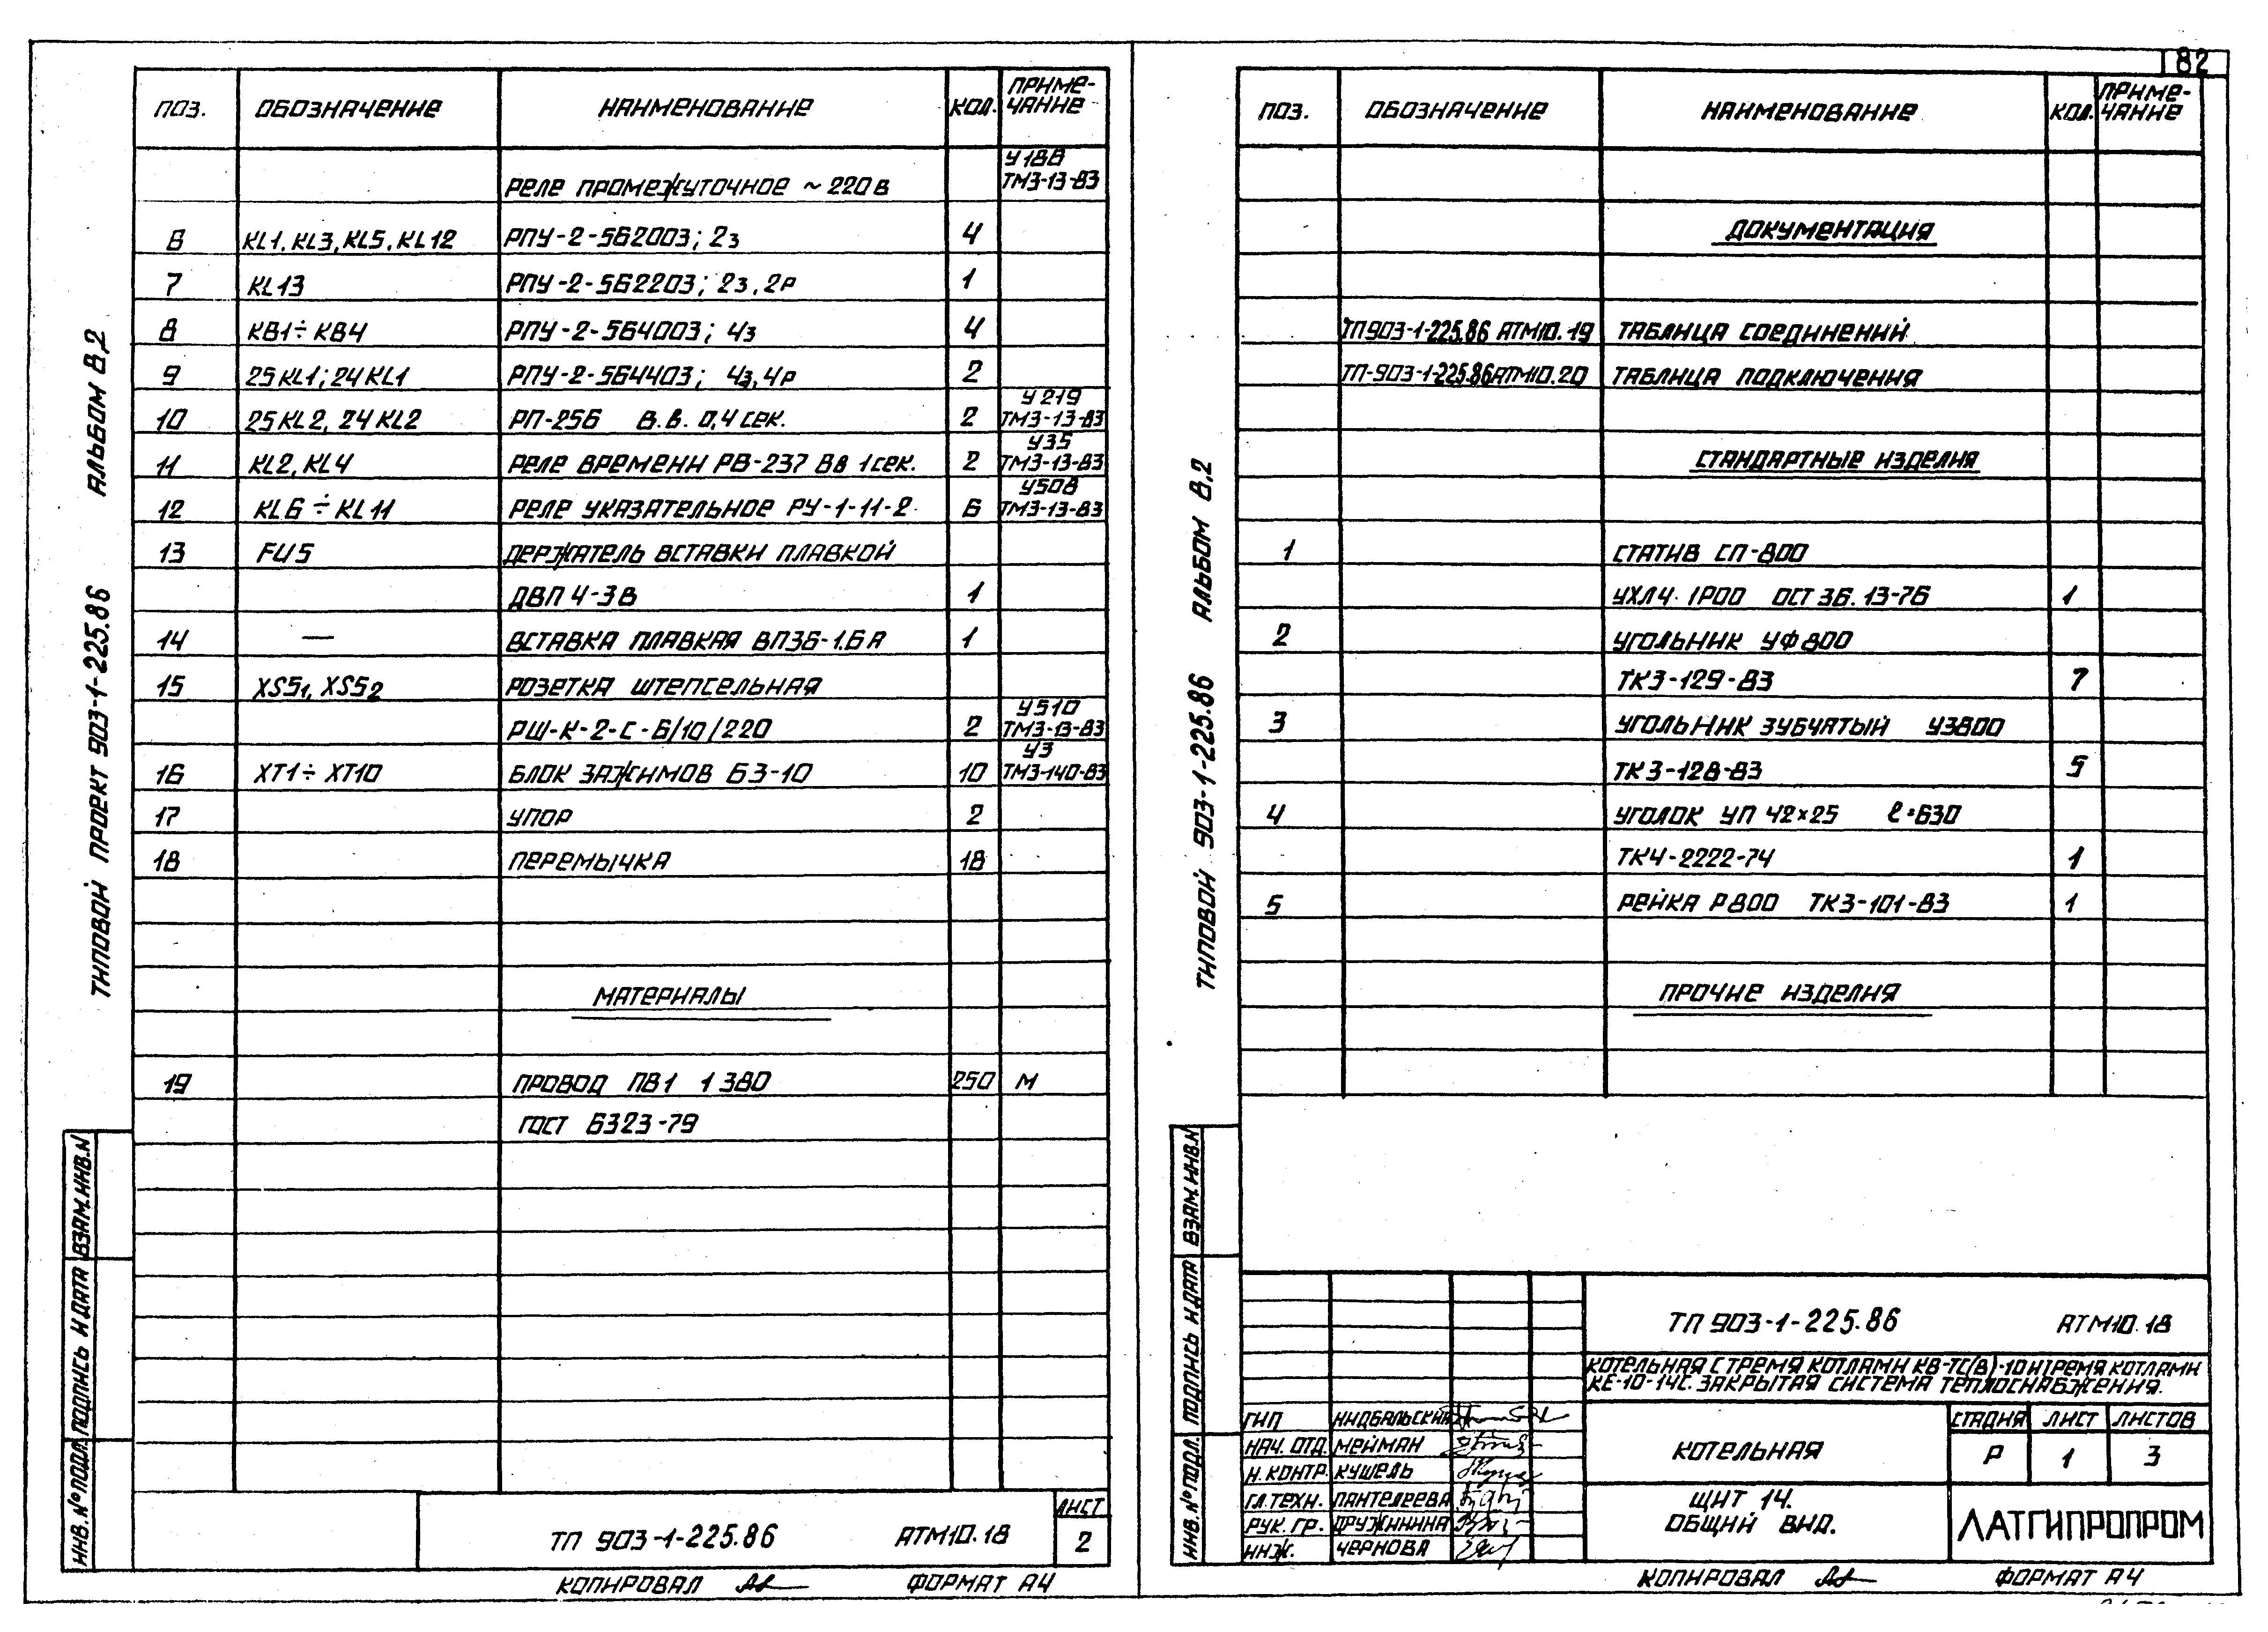 82
ПОЗ. ОБОЗНАЧЕНИЕ НАИМЕНОВАНИЕ КОЛ. ПРИМЕ-ЧАНИЕ
РЕЛЕ ПРОМЕЖУТОЧНОЕ ~ 220 В У188 ТМ3-13-83
6 KL1, KL3, KL5, KL12 РПУ-2-562003; 2з 4
7 KL13 РПУ-2-562203; 2з, 2р 1
8 КВ1÷КВ4 РПУ-2-564003; 4з 4
9 25KL1; 24KL1 РПУ-2-564403; 4з, 4р 2
10 25KL2, 24KL2 РП-256 В.В. 0,4 сек. 2 У219 ТМ3-13-83
11 KL2, KL4 РЕЛЕ ВРЕМЕНИ РВ-237 Вв 1 сек. 2 У35 ТМ3-13-83
12 KL6÷KL11 РЕЛЕ УКАЗАТЕЛЬНОЕ РУ-1-11-2 6 У508 ТМ3-13-83
13 FU5 ДЕРЖАТЕЛЬ ВСТАВКИ ПЛАВКОЙ
ДВП 4-3В 1
14 — ВСТАВКА ПЛАВКАЯ ВП3Б-1.6А 1
15 XS51, XS52 РОЗЕТКА ШТЕПСЕЛЬНАЯ
РШ-К-2-С-6/10/220 2 У510 ТМ3-13-83
16 XT1÷XT10 БЛОК ЗАЖИМОВ БЗ-10 10 У3 ТМ3-140-83
17 УПОР 2
18 ПЕРЕМЫЧКА 18
МАТЕРИАЛЫ
19 ПРОВОД ПВ1 1 380 250 М
ГОСТ 6323-79
ТИПОВОЙ ПРОЕКТ 903-1-225.86 АЛЬБОМ 8.2
ВЗАМ.ИНВ.N
ПОДПИСЬ И ДАТА
ИНВ.№ПОДЛ.
ТП 903-1-225.86 АТМ10.18
ЛИСТ
2
КОПИРОВАЛ ФОРМАТ А4
ПОЗ. ОБОЗНАЧЕНИЕ НАИМЕНОВАНИЕ КОЛ. ПРИМЕ-ЧАНИЕ
ДОКУМЕНТАЦИЯ
ТП903-1-225.86 АТМ10.19 ТАБЛИЦА СОЕДИНЕНИЙ
ТП-903-1-225.86АТМ10.20 ТАБЛИЦА ПОДКЛЮЧЕНИЯ
СТАНДАРТНЫЕ ИЗДЕЛИЯ
1 СТАТИВ СП-800
УХЛ4. 1Р00 ОСТ 36.13-76 1
2 УГОЛЬНИК УФ800
ТК3-129-83 7
3 УГОЛЬНИК ЗУБЧАТЫЙ УЗ800
ТК3-128-83 5
4 УГОЛОК УП 42×25 ℓ=630
ТК4-2222-74 1
5 РЕЙКА Р800 ТК3-101-83 1
ПРОЧИЕ ИЗДЕЛИЯ
ТИПОВОЙ 903-1-225.86 АЛЬБОМ 8.2
ВЗАМ.ИНВ.N
ПОДПИСЬ И ДАТА
ИНВ.№ПОДЛ.
ТП 903-1-225.86 АТМ10.18
КОТЕЛЬНАЯ С ТРЕМЯ КОТЛАМИ КВ-ТС(В)-10 И ТРЕМЯ КОТЛАМИ
КЕ-10-14С. ЗАКРЫТАЯ СИСТЕМА ТЕПЛОСНАБЖЕНИЯ.
ГИП
НАЧ. ОТД. МЕЙМАН
Н.КОНТР. КУШЕЛЬ
ГЛ.ТЕХН. ПАНТЕЛЕЕВА
РУК. ГР. ДРУЖИНИНА
ИНЖ. ЧЕРНОВА
КОТЕЛЬНАЯ
СТАДИЯ ЛИСТ ЛИСТОВ
Р 1 3
ЩИТ 14.
ОБЩИЙ ВИД.
ЛАТГИПРОПРОМ
КОПИРОВАЛ ФОРМАТ А4